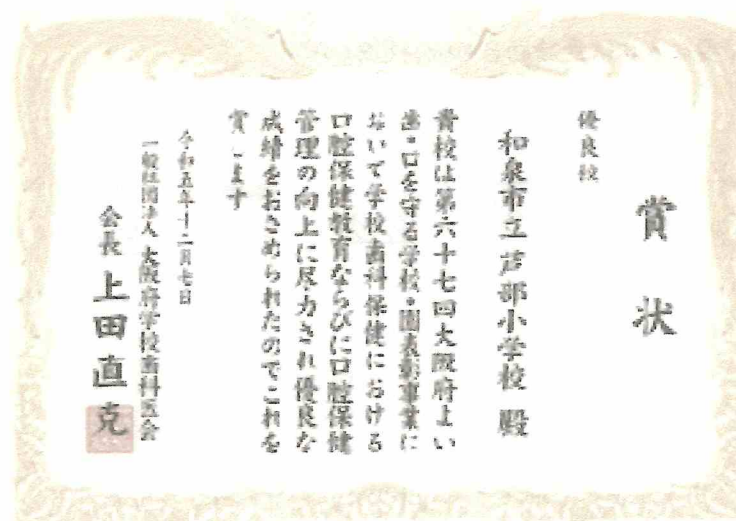 賞状
優良校
和泉市立芦部小学校 殿
貴校は第六十七回大阪府よい
歯・口を守る学校・園表彰事業に
おいて学校歯科保健における
口腔保健教育ならびに口腔保健
管理の向上に尽力され優良な
成績をおさめられたのでこれを
賞します
令和五年十二月七日
一般社団法人 大阪府学校歯科医会
会長 上田直克